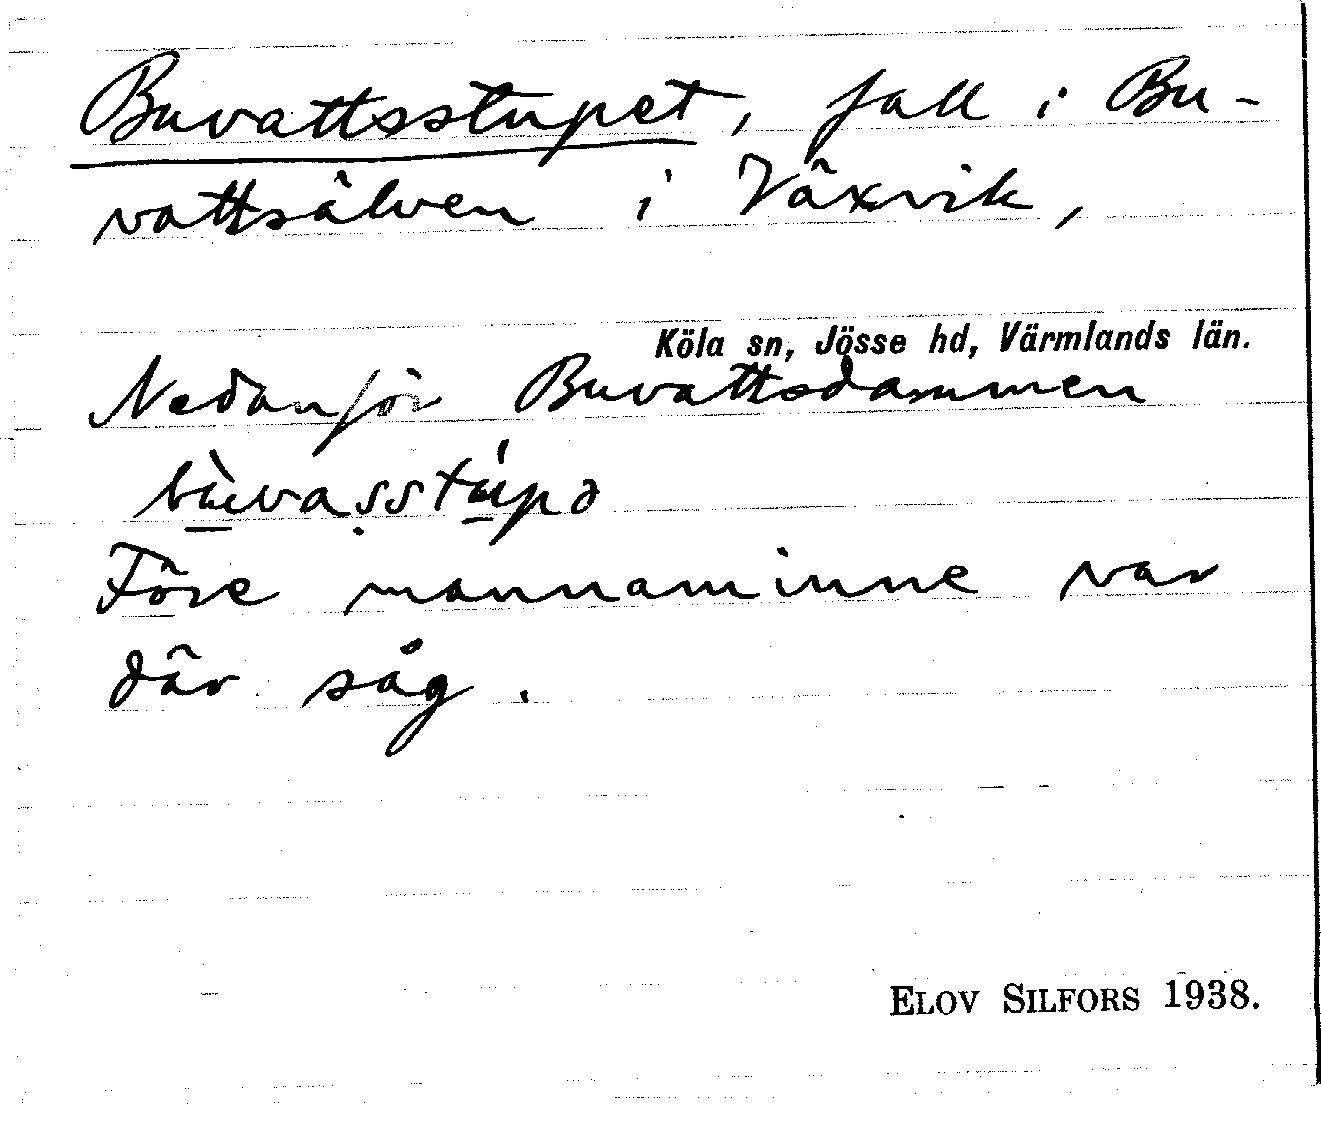 Buvattsstupet, fall i Bu-
vattsälven i Växvik,
Köla sn, Jösse hd, Värmlands län.
Nedanför Buvattsdammen
bu̠̇̀vaṣsstú̠pə
Före mannaminne var
där såg.
ELOV SILFORS 1938.